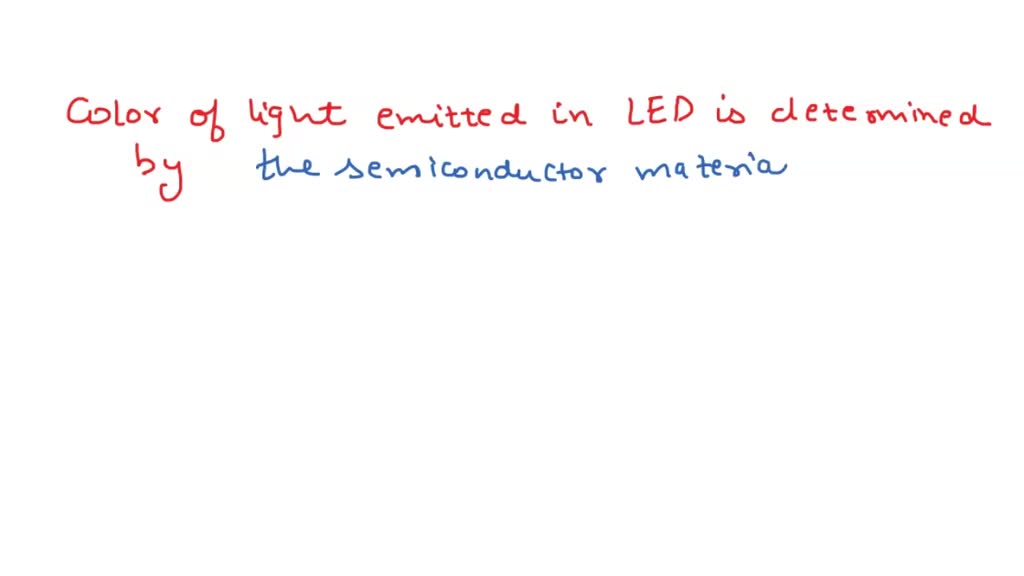 Color of light emitted in LED is determined
by the semiconductor materia